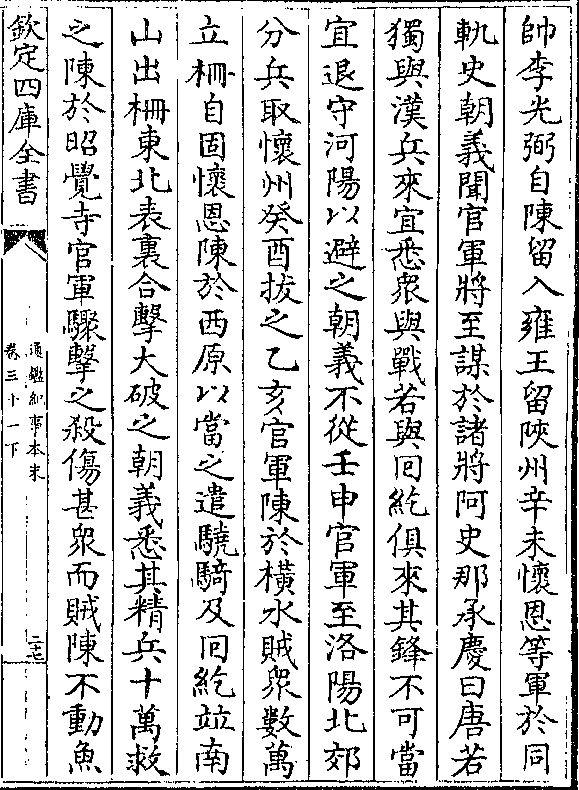 帥李光弼自陳留入雍王留陝州辛未懷恩等軍於同
軌史朝義聞官軍將至謀於諸將阿史那承慶曰唐若
獨與漢兵來宜悉衆與戰若與囘紇俱來其鋒不可當
宜退守河陽以避之朝義不從壬申官軍至洛陽北郊
分兵取懷州癸酉拔之乙亥官軍陳於橫水賊衆數萬
立柵自固懷恩陳於西原以當之遣驍騎及囘紇竝南
山出柵東北表裏合擊大破之朝義悉其精兵十萬救
之陳於昭覺寺官軍驟擊之殺傷甚衆而賊陳不動魚
欽定四庫全書
通鑑紀事本末
卷三十一下
二七